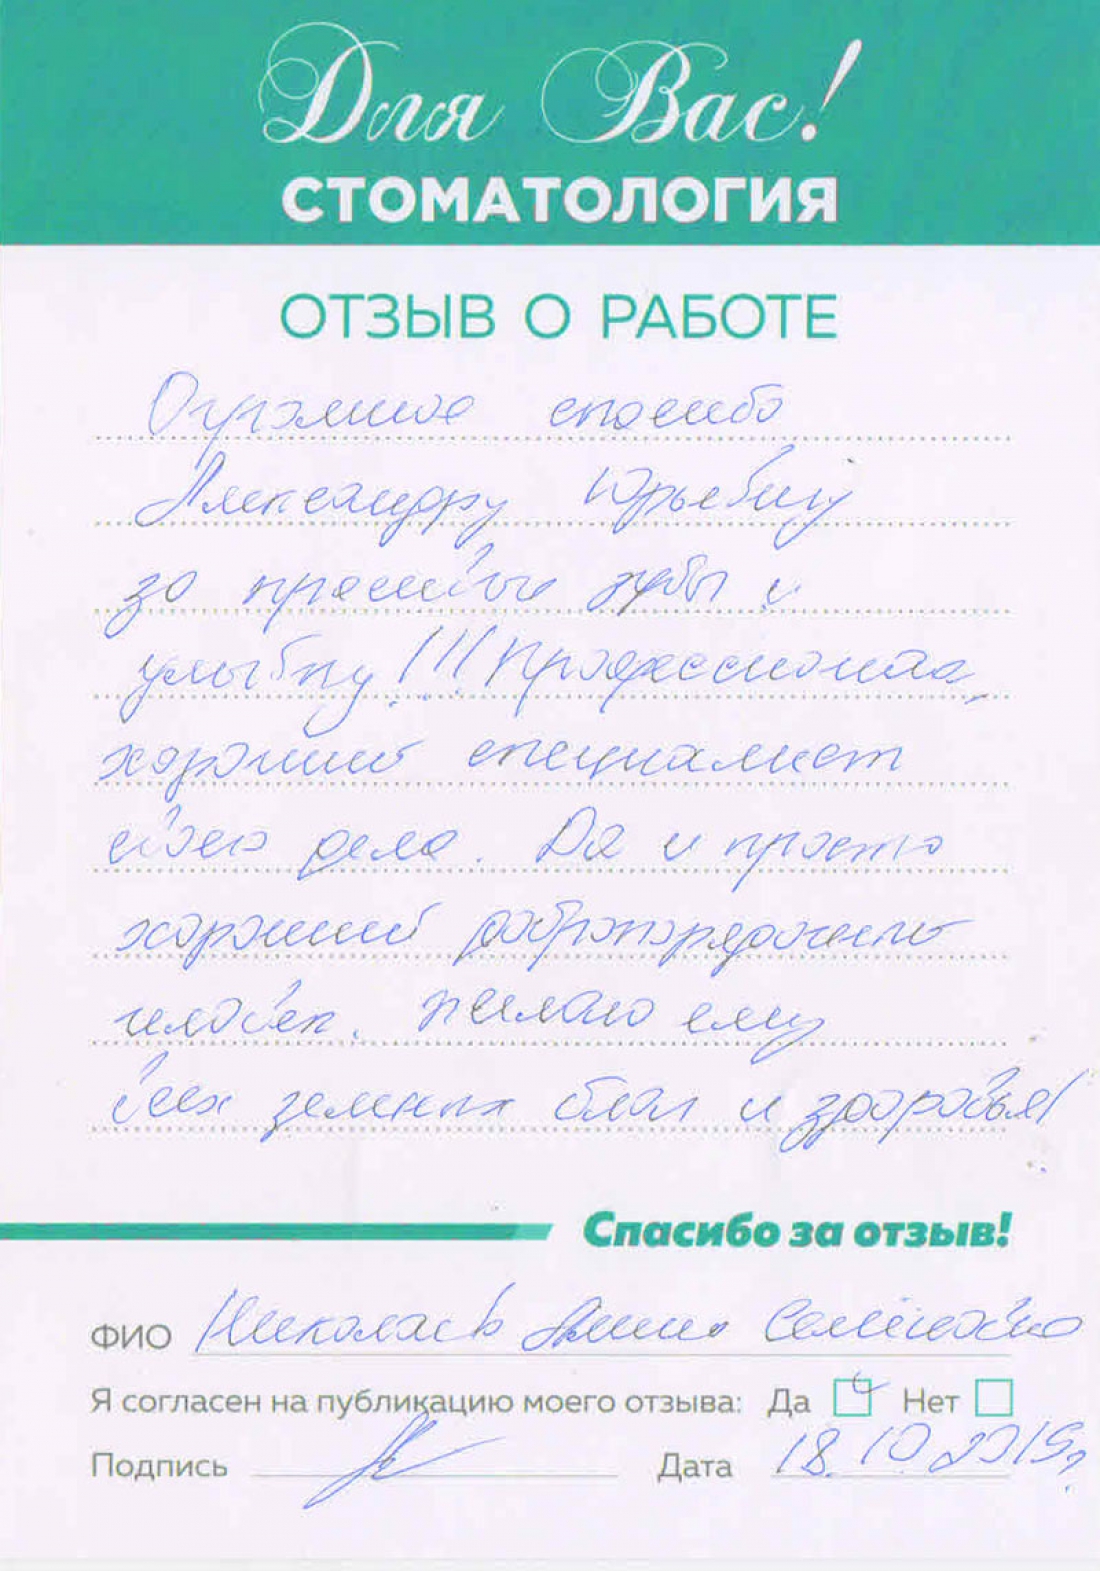 Для Вас!
СТОМАТОЛОГИЯ
ОТЗЫВ О РАБОТЕ
Огромное спасибо
Александру Юрьевичу
за красивые зубы и
улыбку!!! Профессионал,
хороший специалист
своего дела. Да и просто
хороший добропорядочный
человек. Желаю ему
всех земных благ и здоровья!
Спасибо за отзыв!
ФИО Анна Семёновна
Я согласен на публикацию моего отзыва: Да Нет
Подпись Дата 18.10.2019г